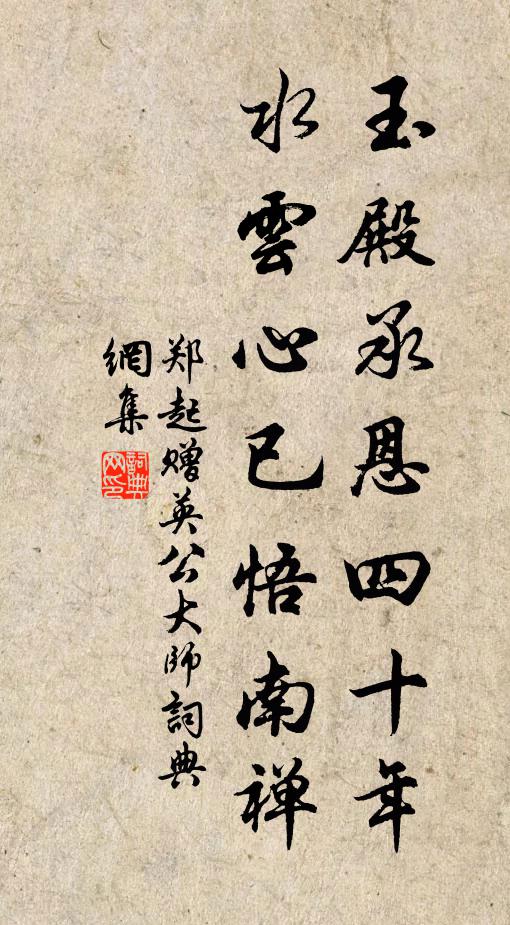 玉殿承恩四十年
水雲心已悟南禅
郑起赠英公大師詞典
網集
詞典網印